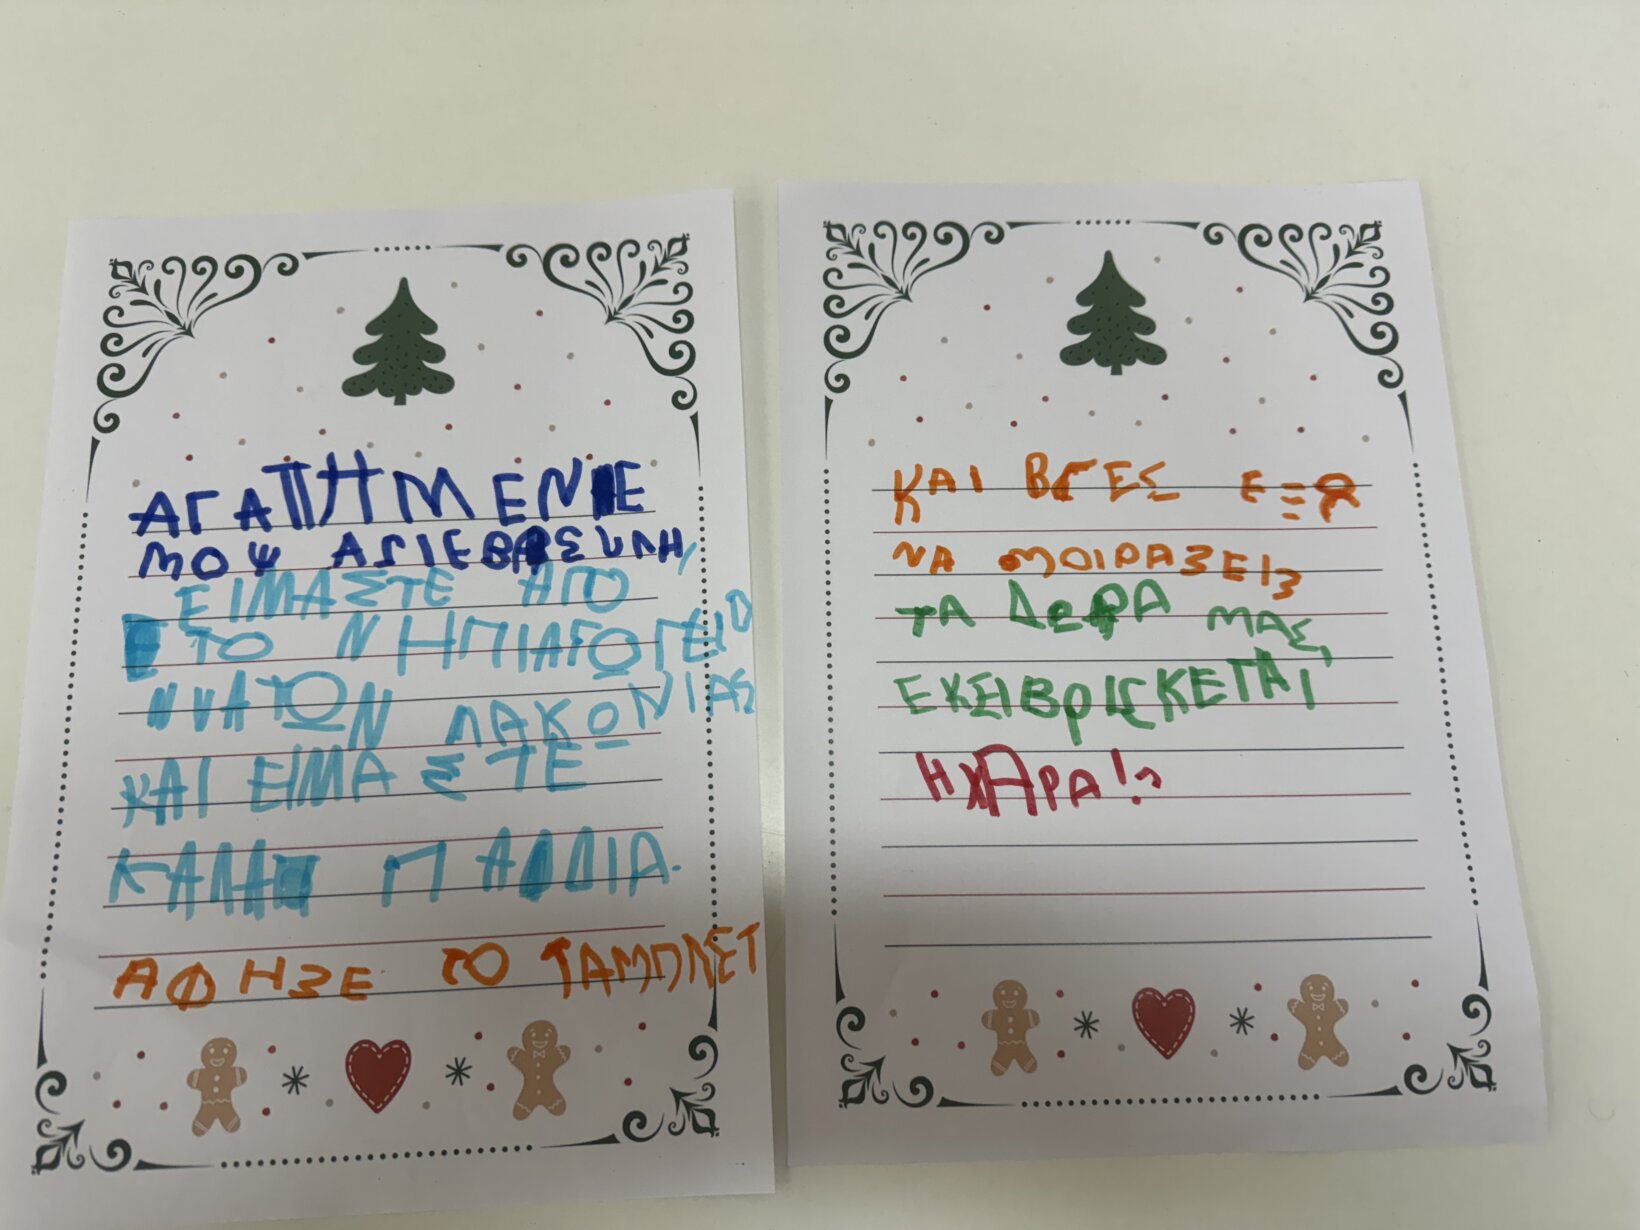 ΑΓΑΠΗΜΕΝΕ
ΜΟΥ ΑΓΙΕ ΒΑΣΙΛΗ
ΕΙΜΑΣΤΕ ΑΠΟ
ΤΟ ΝΗΠΙΑΓΩΓΕΙΟ
ΝΙΑΤΩΝ ΛΑΚΩΝΙΑΣ
ΚΑΙ ΕΙΜΑΣΤΕ
ΚΑΛΑ ΠΑΙΔΙΑ.
ΑΦΗΣΕ ΤΟ ΤΑΜΠΛΕΤ
ΚΑΙ ΒΓΕΣ ΕΞΩ
ΝΑ ΜΟΙΡΑΣΕΙΣ
ΤΑ ΔΩΡΑ ΜΑΣ,
ΕΚΕΙ ΒΡΙΣΚΕΤΑΙ
Η ΧΑΡΑ!